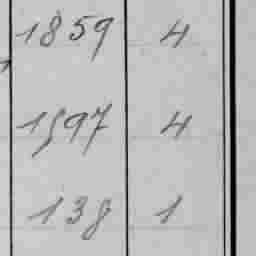 1859 4
1597 4
138 1